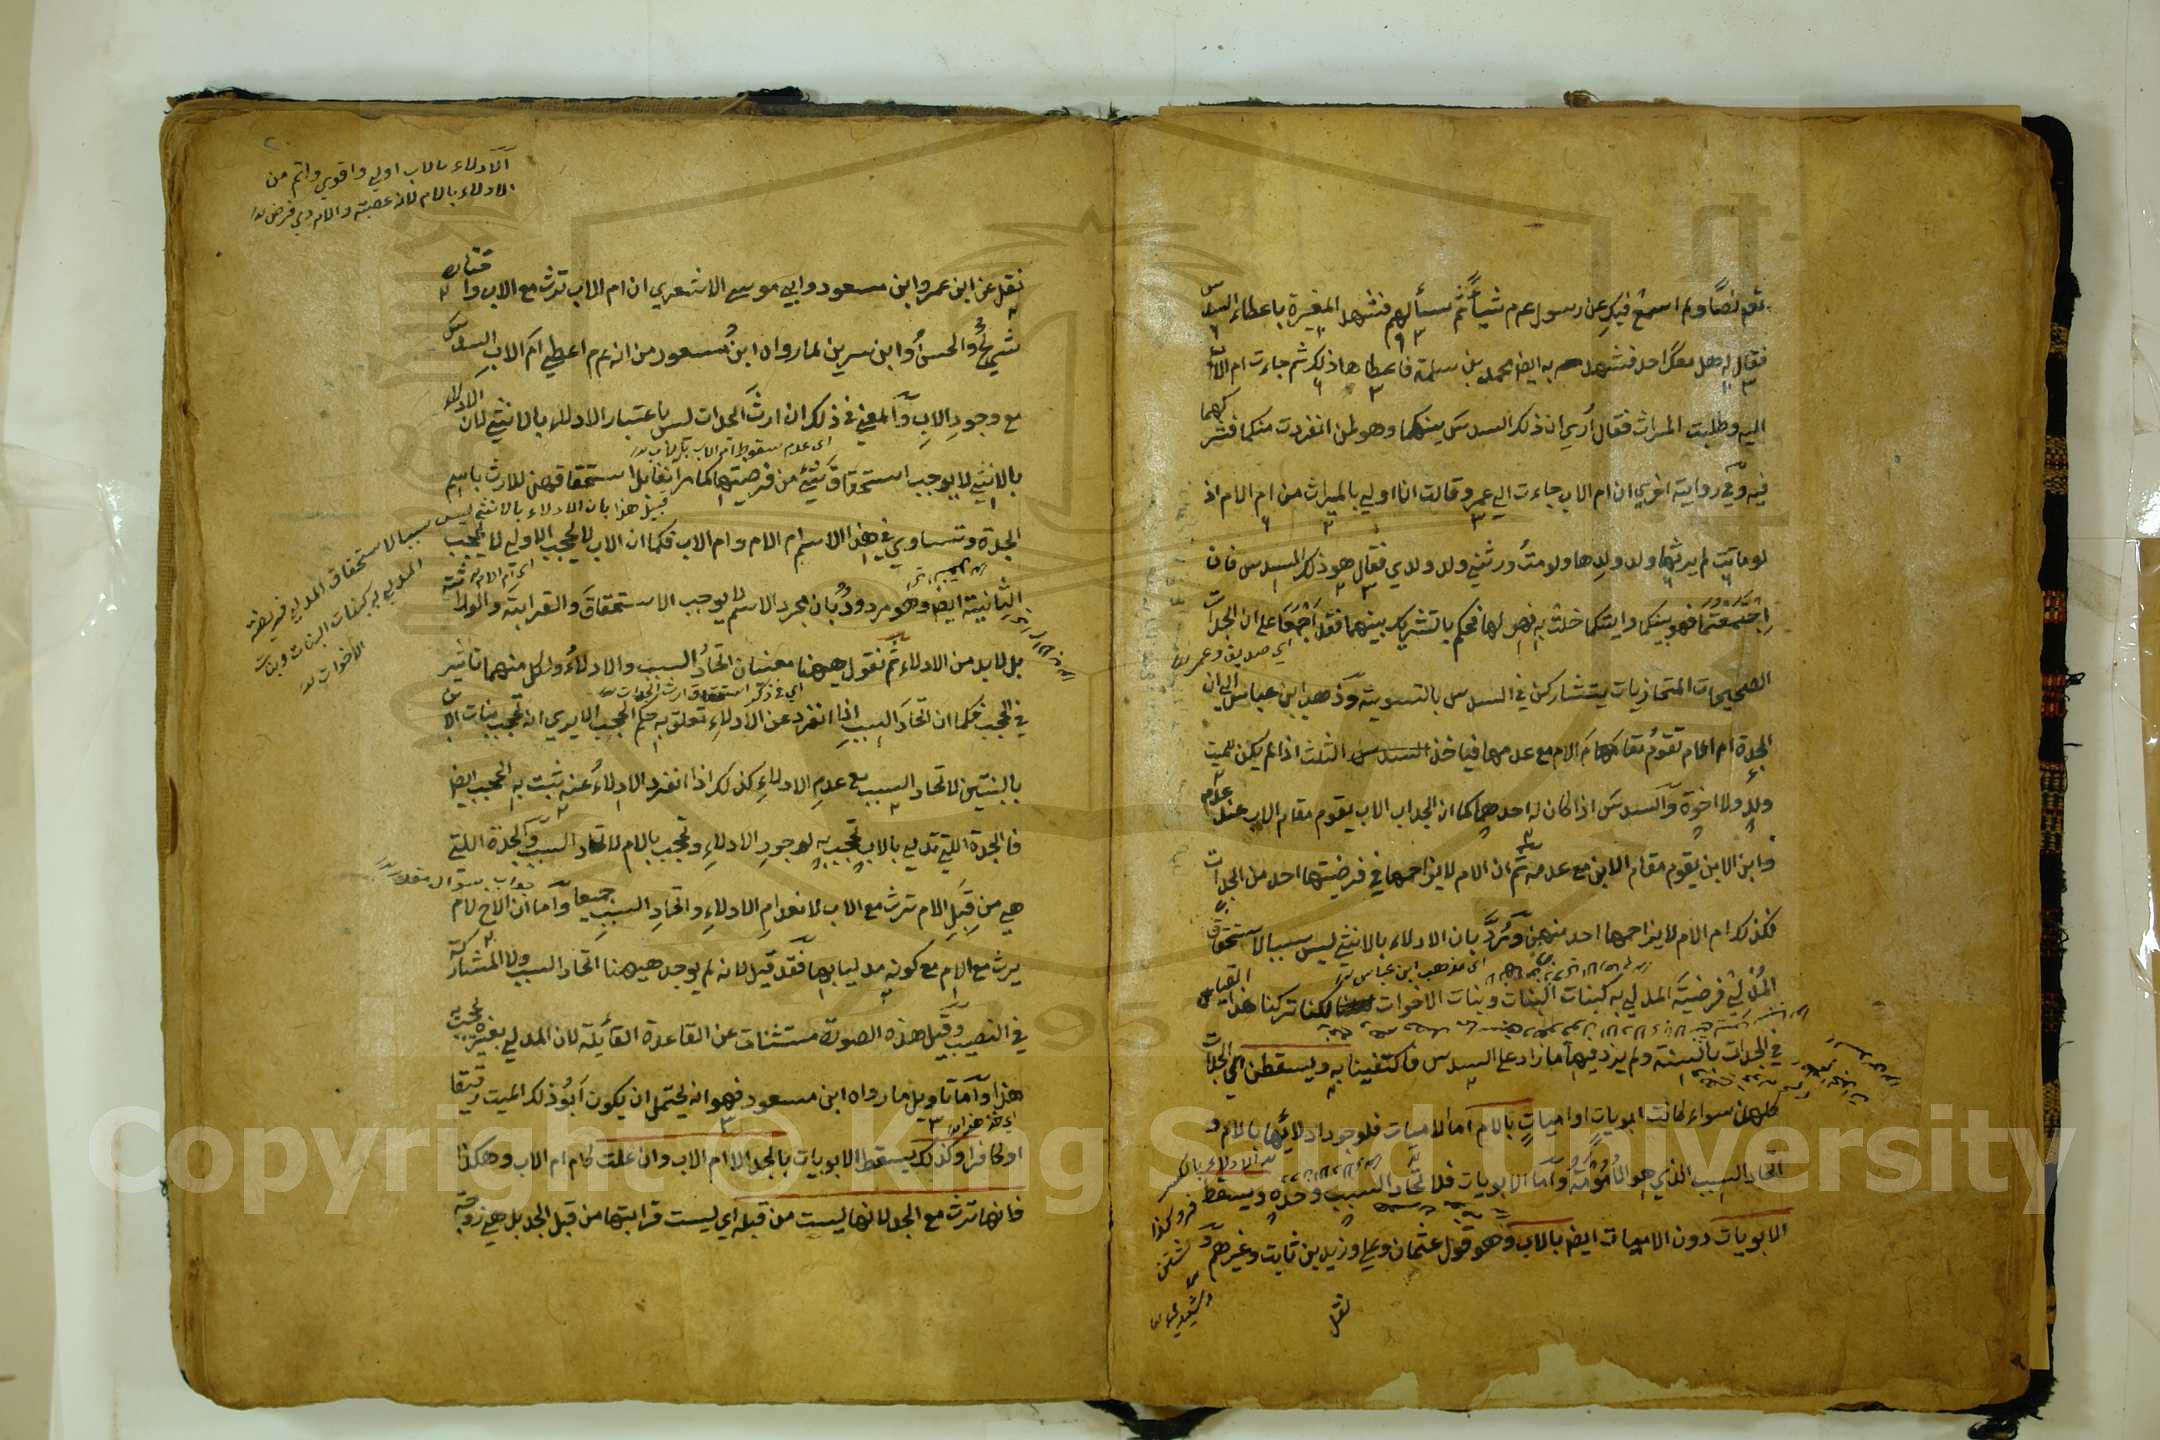 نعم نصا ولم اسمع فيك عن رسول عم م شيأ ثم سألهم فشهد المغيرة باعطاء السدس
فقال له هل معك احد فشهد به ايضا محمد بن سلمة فاعطاها ذلك ثم جاءت ام الاب
اليه وطلبت الميراث فقال أرى ان ذلك السدس بينكما وهو لمن انفردت منكما فشركهما
فيه وفي رواية اخري ان ام الاب جاءت الي عمر وقالت انا اولي بالميراث من ام الام اذ
لو ماتت لم يرثها ولد ولدها ولو مت ورثني ولد ولدي فقال هو ذلك السدس فان
اجتمعتما فهو بينكما وايتكما خلت به فهو لها فحكم بالتشريك بينهما فقد اجمعا على ان الجدات
اي صديق وعمر
الصحيحات المتحاذيات يتشاركن في السدس بالتسوية وذهب ابن عباس الى ان
الجدة ام الام تقوم مقام الام مع عدمها فياخذ السدس الثلث اذا لم يكن للميت
ولد ولا اخوة والسدس اذا كان له احدهما كما ان الجد اب الاب يقوم مقام الاب عند عدم
وابن الابن يقوم مقام الابن مع عدمه ثم ان الام لا يزاحمها في فريضتها احد من الجدات
فكذلك ام الام لا يزاحمها احد منهن ورد بان الادلاء بالانثي ليس سببا لاستحقاق
اي مذهب ابن عباس
المدلي فريضة المدلي به كبنات البنات وبنات الاخوات لكنا تركنا هذا القياس
في الجدات بالسنة ولم يزد فيها ما زاد على السدس فاكتفينا به ويسقطن اي الجدات
كلهن سواء كانت ابويات او اميات بالام اما الاميات فلوجود ادلائها بالام و
اتحاد السبب الذي هو الامومة واما الابويات فلاتحاد السبب وحده ويسقط
الابويات دون الاميات ايضا بالاب وهو قول عثمان وعلي وزيد بن ثابت وغيرهم
نقل
الادلاء بالاب اولي واقوي واتم من
الادلاء بالام لانه عصبته والام ذي فرض
نقل عن ابن عمر وابن مسعود وابي موسي الاشعري ان ام الاب ترث مع الاب واختاره
شريح والحسن وابن سرين لما رواه ابن مسعود من انه عم م اعطي ام الاب السدس
مع وجود الاب والمعني في ذلك ان ارث الجدات ليس باعتبار الادلاء بالانثي لان الادلاء
اي عدم سقوط ام الاب بالاب
بالانثي لا يوجب استحقاق شيء من فريضتها كما مر انفا بل استحقاقهن للارث باسم
قيل هذا بان الادلاء بالانثي ليس سببا لاستحقاق المدلي فريضة
المدلي به كبنات البنات وبنات
الاخوات
الجدة وتساوي في هذا الاسم ام الام وام الاب فكما ان الاب لا يحجب الاولي لا يحجب
اي ام الام
الثانية ايضا وهو مردود بان مجرد الاسم لا يوجب الاستحقاق والقرابة والوراثة
بل لا بد من الادلاء ثم نقول ههنا معنيان اتحاد السبب والادلاء ولكل منهما تاثير
في الحجب فكما ان اتحاد السبب اذا انفرد عن الادلاء تعلق به حكم الحجب الا يري انه تحجب بنات الابن
بالبنتين لاتحاد السبب مع عدم الادلاء كذلك اذا انفرد الادلاء عنه ثبت به الحجب ايضا
فالجدة اللتي تدلي بالاب تحجب به لوجود الادلاء وتحجب بالام لاتحاد السبب والجدة اللتي
جواب سوال مقدر
هي من قبل الام ترث مع الاب لانعدام الادلاء واتحاد السبب جميعا واما ان الاخ لام
يرث مع الام مع كونه مدليا بها فقد قيل لانه لم يوجد هيهنا اتحاد السبب ولا المشاركة
في النصيب وقيل هذه الصورة مستثنات عن القاعدة القائلة لان المدلي بغيره يحجب به
هذا واما تاويل ما رواه ابن مسعود فهو انه يحتمل ان يكون ابو ذلك الميت رقيقا
او كافرا وكذلك يسقط الابويات بالجد الا ام الاب وان علت كام ام الاب وهكذا
فانها ترث مع الجد لانها ليست من قبله اي ليست قرابتها من قبل الجد بل هي زوجته